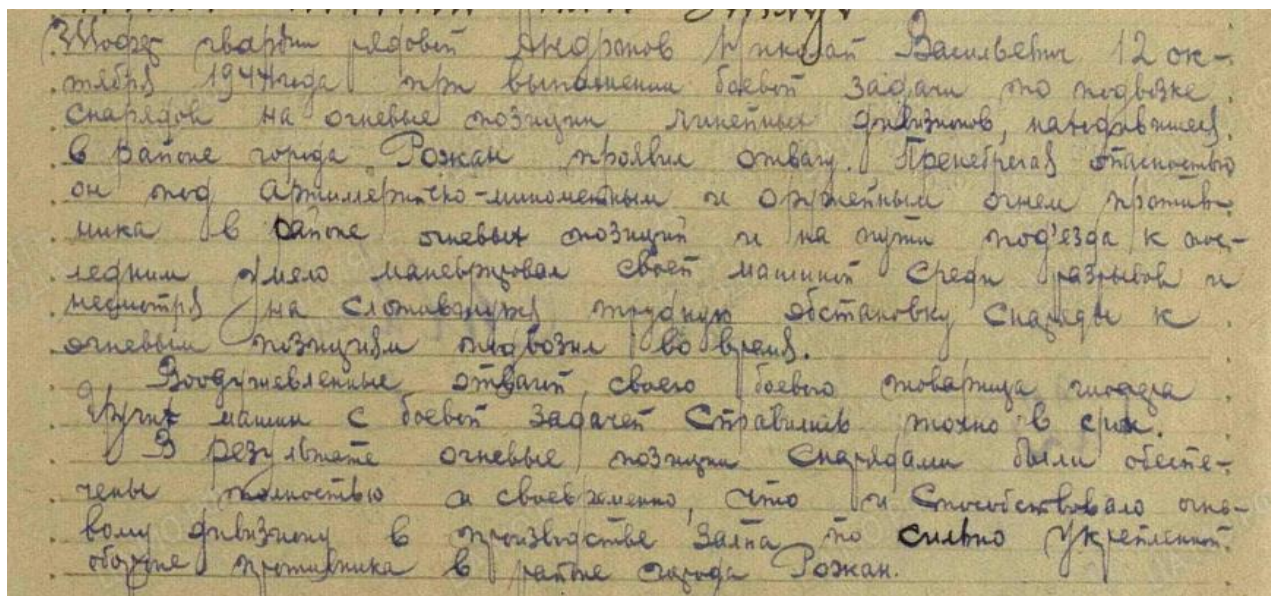 Шофер гвардии рядовой Андронов Николай Васильевич 12 ок-
тября 1944 года при выполнении боевой задачи по подвозке
снарядов на огневые позиции линейных дивизионов, находившиеся
в районе города Рожан проявил отвагу. Пренебрегая опасностью
он под артиллерийско-минометным и оружейным огнем против-
ника в районе огневых позиций и на пути под'езда к пос-
ледним умело маневрировал своей машиной среди разрывов и
несмотря на сложившуюся трудную обстановку снаряды к
огневым позициям подвозил во время.
Воодушевленные отвагой своего боевого товарища шофера
других машин с боевой задачей справились точно в срок.
В результате огневые позиции снарядами были обеспе-
чены полностью и своевременно, что и способствовало огне-
вому дивизиону в производстве залпа по сильно укрепленной
обороне противника в районе города Рожан.